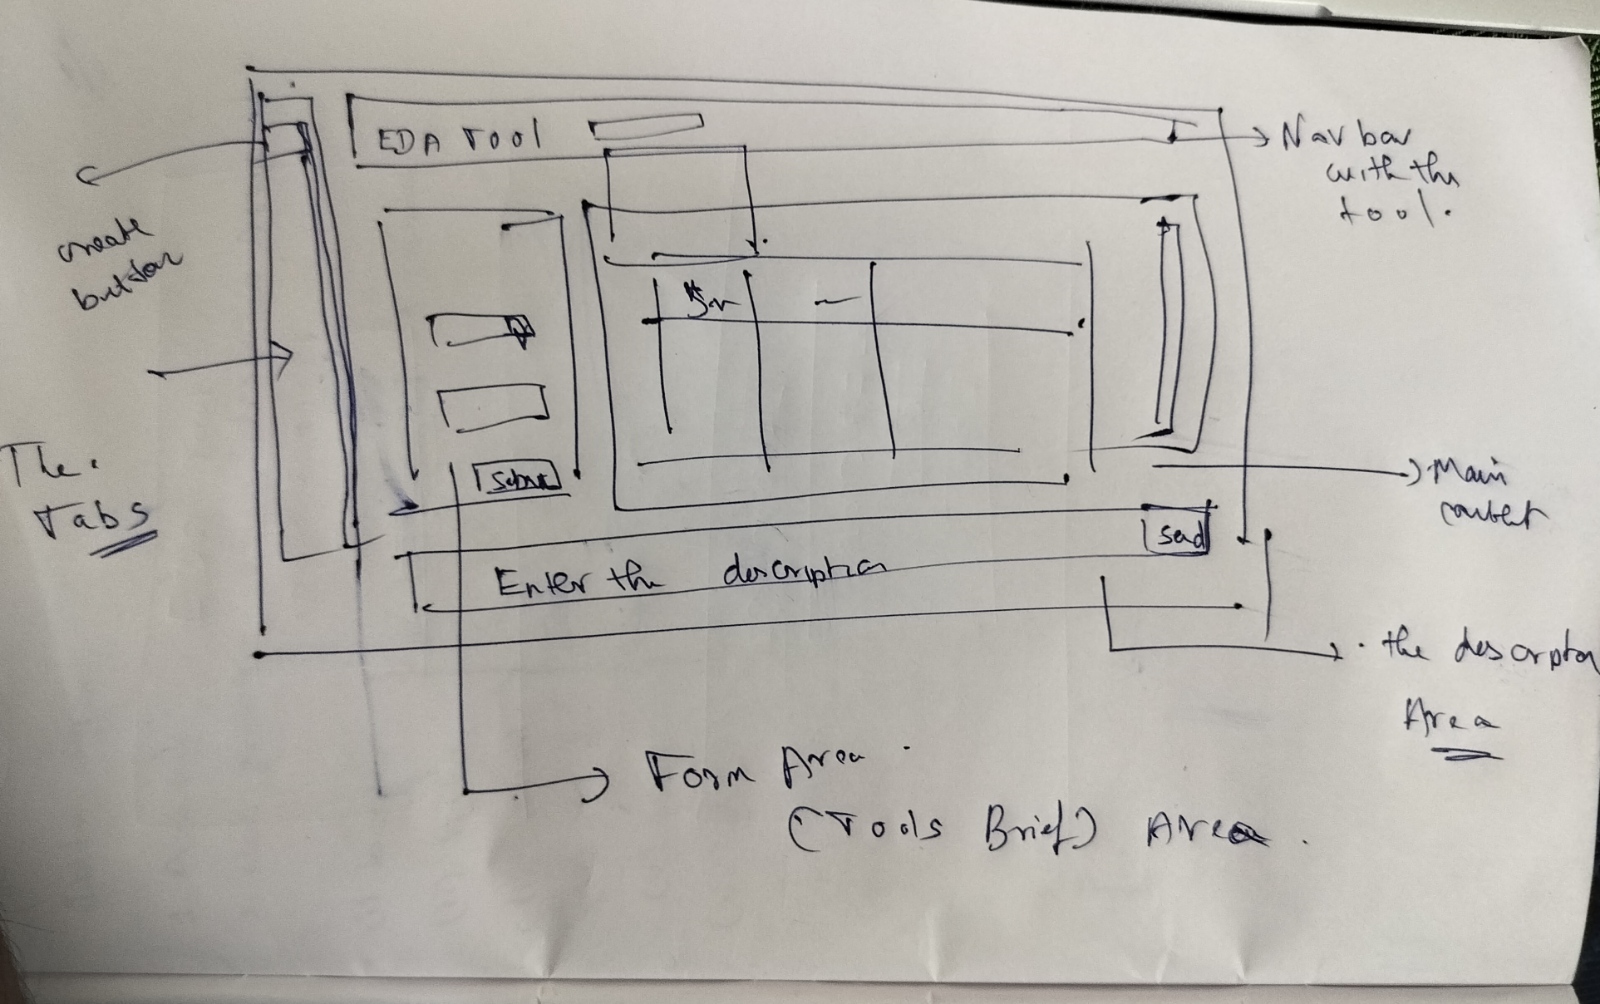 EDA TOOl
Nav bar
with the
tool.
create
button
The.
Tabs
Submit
Main
content
Send
Enter the description
. the description
Area
Form Area.
(Tools Brief) Area.